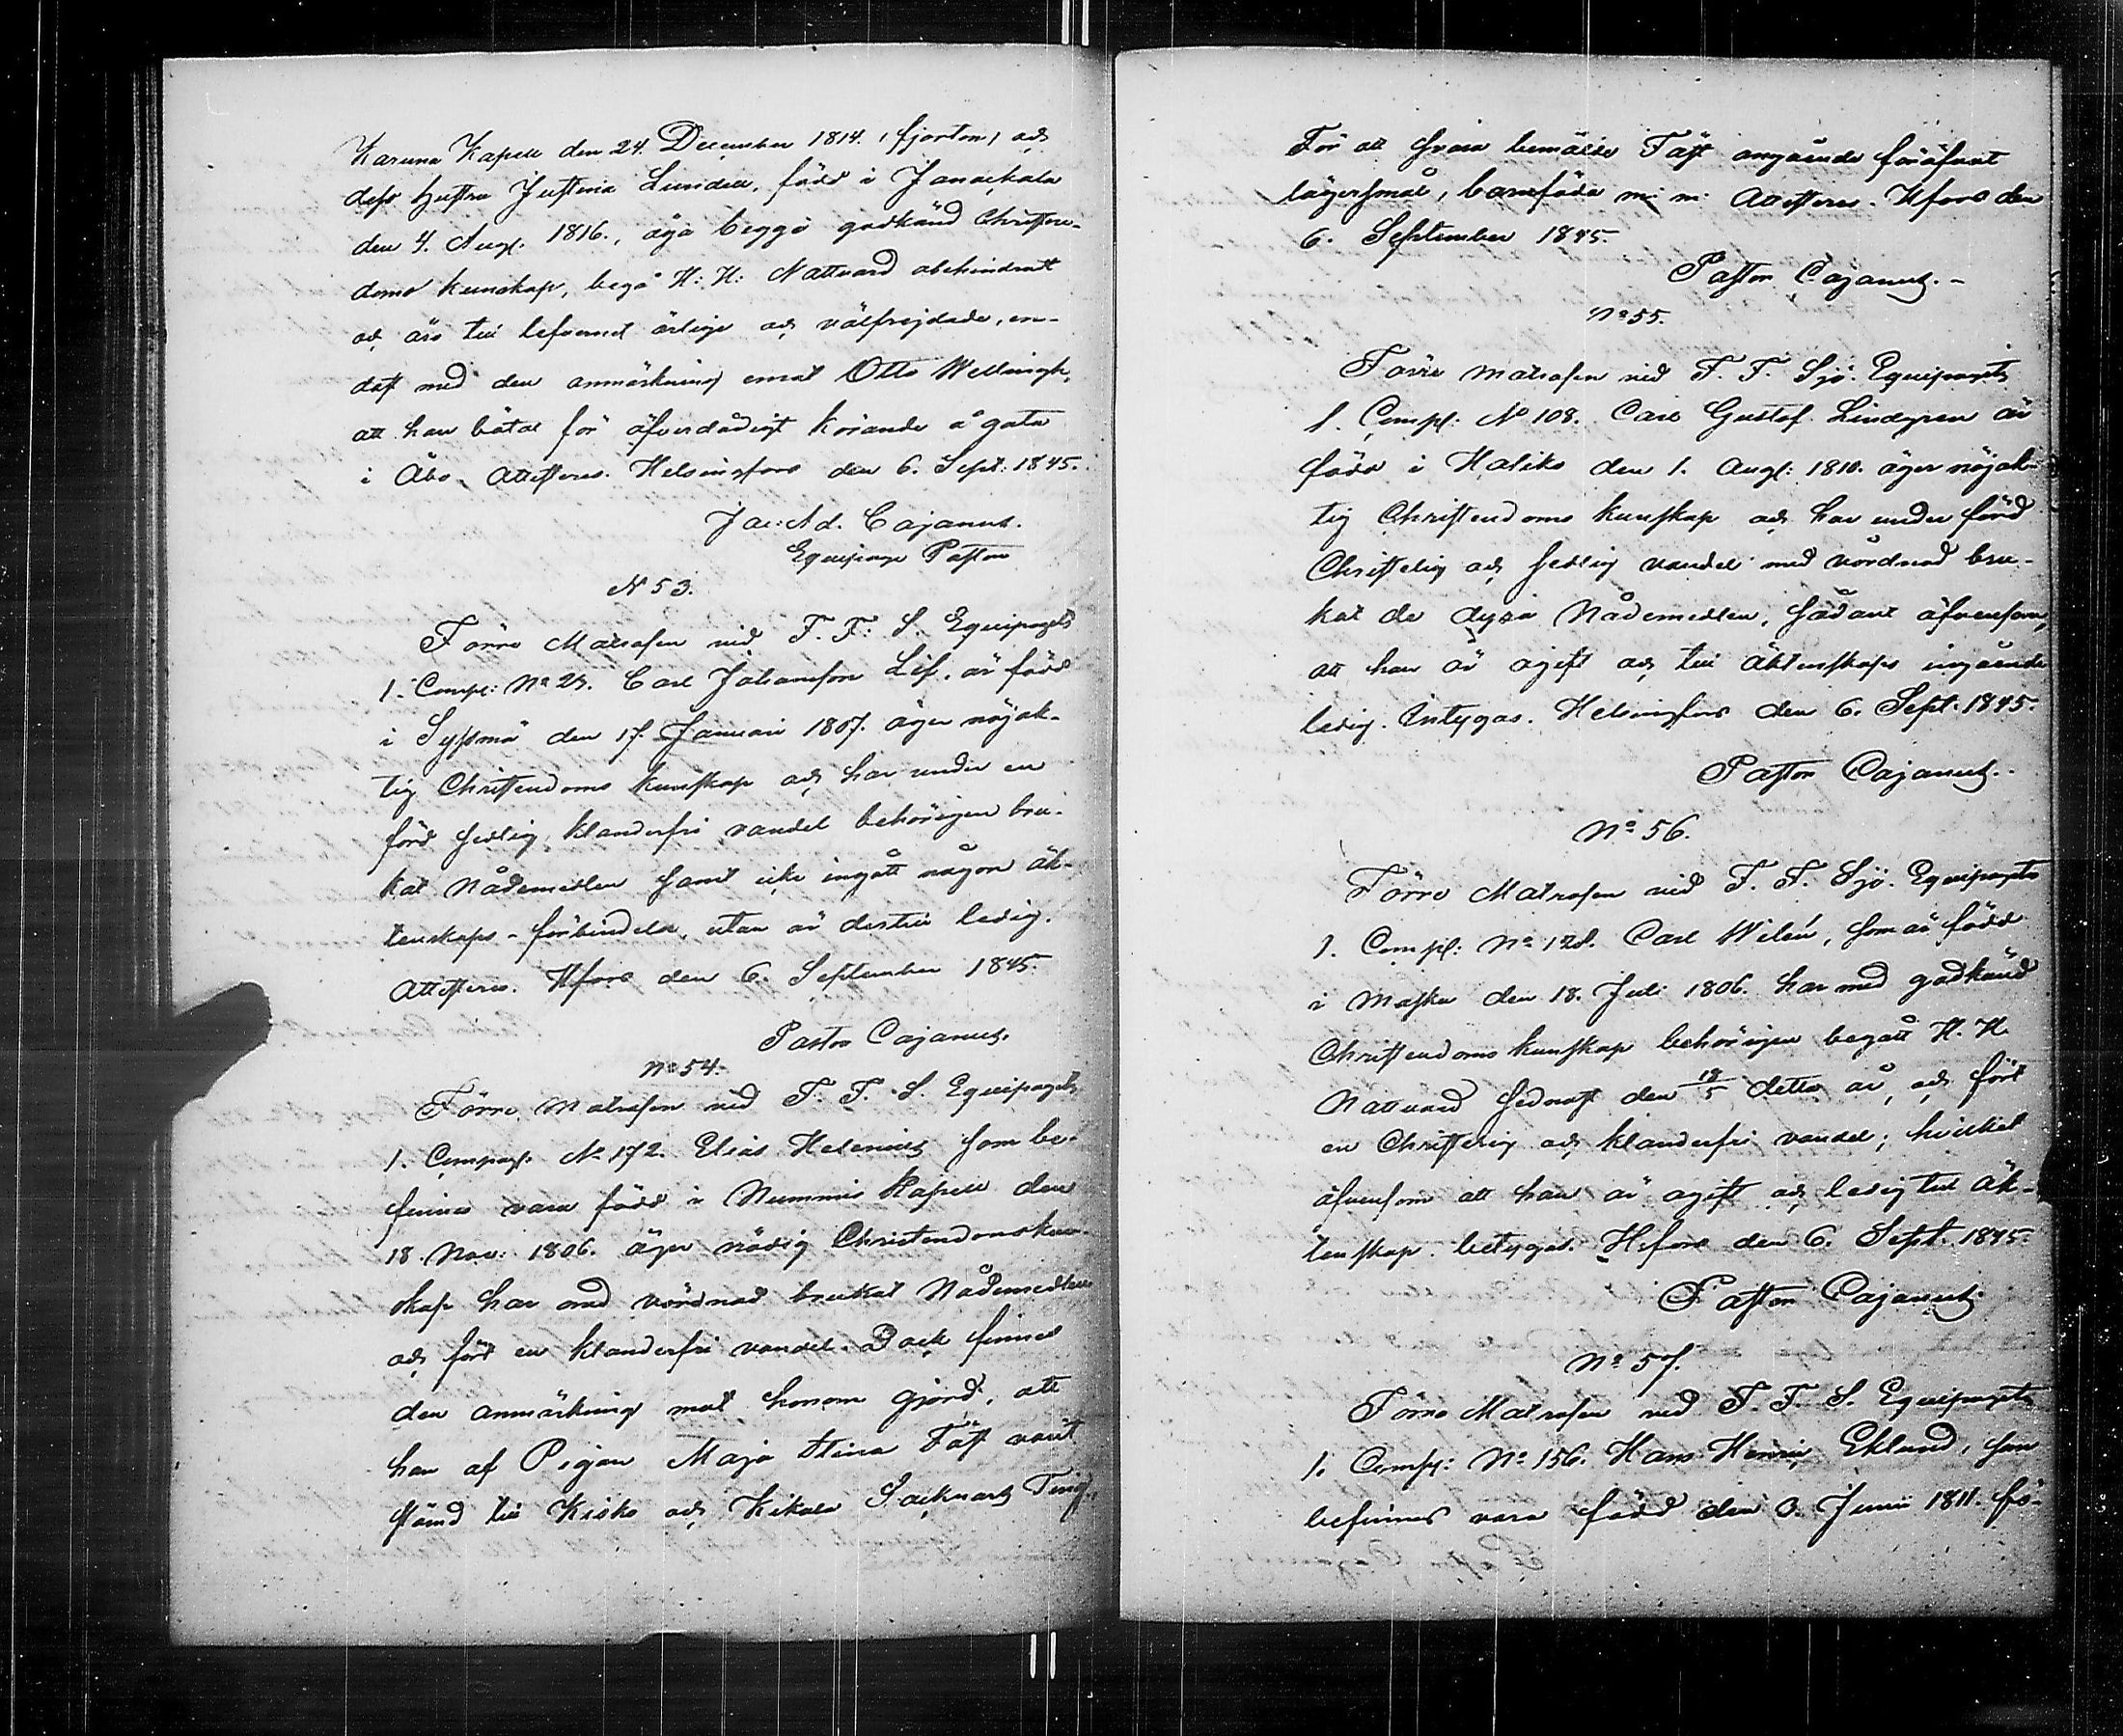 Karuna Kapell den 24. December 1814. (fjorton) och
dess hustru Justina Lindell, född i Janackala
den 4. Aug. 1816., äga begge godkänd Christen-
doms kunskap, begå H: H: Nattvard obehindradt
och äro till lefvernet ärlige och välfrejdade, en-
dast med den anmärkning emot Otto Wellingk,
att han bötat för öfverdådigt körande å gata
i Åbo, Attesteras. Helsingfors den 6. Sept: 1845.
Jac: Ad. Cajanus.
Equipage Pastor
N 53.
Förre Matrosen vid F. F: S. Equipagets
1. Comp: No 25. Carl Johansson Lif, är född
i Sysmä den 17. Januari 1807. äger nöjak-
tig Christendoms kunskap och har under en
förd sedlig, klanderfri vandel behörigen bru-
kat Nådemedlen samt icke ingått någon äk-
tenskaps-förbindelse, utan är dertill ledig.
Attesteras. Hfors den 6. September 1845.
Pastor Cajanus.
No 54.
Förre Matrosen vid F. F. S. Equipagets
1. Compag. No 172. Elias Helenius som be-
finnes vara född i Nummis Kapell den
18. Nov: 1806. äger nödig Christendomskun-
skap har med vördnad brukat Nådemedlen
och fört en klanderfri vandel. Dock finnes
den anmärkning mot honom gjord, att
han af Pigan Maja Stina Täft varit
stämd till Kisko och Kikala Socknars Ting,
För att svara bemälde Täft angående föröfvat
lägersmål, barnföda m: m: Attesteras. Hfors den
6. September 1845.
Pastor Cajanus.-
No 55.
Förre Matrosen vid F. F. Sjö-Equipagets
1. Comp: No 108. Carl Gustaf Lindgren är
född i Haliko den 1. Aug: 1810. äger nöjak-
tig Christendoms kunskap och har under förd
Christelig och sedlig vandel med vördnad bru-
kat de dyra Nådemedlen, sådant äfvensom,
att han är ogift och till äktenskaps ingående
ledig. Intygas. Helsingfors den 6. Sept. 1845.
Pastor Cajanus.
No 56.
Förre Matrosen vid F. F. Sjö-Equipagets
1. Comp: No 128. Carl Wilén, som är född
i Masku den 18. Juli 1806. har med godkänd
Christendoms kunskap behörigen begått H. H.
Nattvard sednast den 18/5 detta år, och fört
en Christelig och klanderfri vandel; hvilket
äfvensom att han är ogift och ledig till äk-
tenskap. betygas. Hfors den 6. Sept. 1845.
Pastor Cajanus.
No 57.
Förre Matrosen vid F. F. S. Equipagets
1. Comp: No 156. Hans Henric Eklund, som
befinnes vara född den 3. Junii 1811. fö-